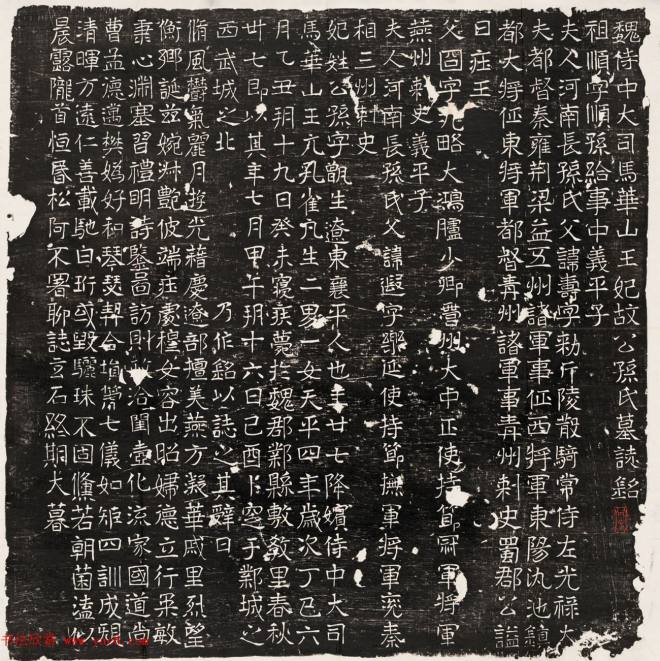 魏侍中大司馬華山王妃故公孫氏墓誌銘
祖順字順孫給事中義平子
夫人河南長孫氏父諱壽字勑斤陵散騎常侍左光祿大
夫都督秦雍荆梁益五州諸軍事征西將軍東陽仇池鎮
都大將征東將軍都督青州諸軍事青州刺史蜀郡公謚
曰莊王
父囧字九略大鴻臚少卿營州大中正使持節冠軍將軍
燕州刺史義平子
夫人河南長孫氏父諱遐字樂延使持節撫軍將軍兖秦
相三州刺史
妃姓公孫字甑生遼東襄平人也年廿七降嬪侍中大司
馬華山王亢孔雀凡生二男一女天平四年歲次丁巳六
月乙丑玥十九日癸未寢疾薨於魏郡鄴縣敷教里春秋
卅七即以其年七月甲午玥十六日己酉卜窆于鄴城之
西武城之北 乃作銘以誌之其辭曰
脩風欝氣麗月遊光藉慶遼部壇美燕方凝華戚里烈望
衡鄉誕兹婉淑艷彼端莊處椎女容出昭婦德立行柔敏
秉心淵塞習禮明詩鑒啚訪則 洽閨壼化流家國道尚
曹孟德邁樊嬀好和琴瑟契合塤箎七儀如矩四訓成規
清暉方遠仁善載馳白珩或毀驪珠不固儵若朝菌溘
晨露隴首恒昏松阿不署聊誌玄石終期大暮